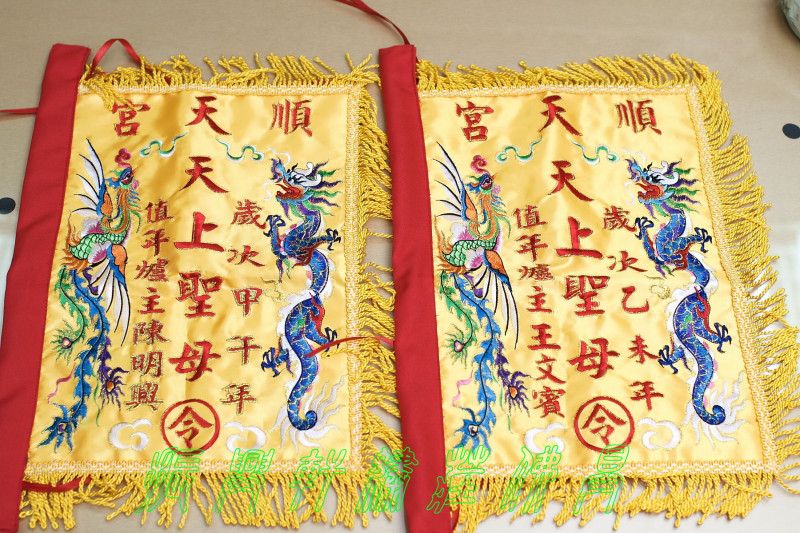 順天宮
歲次甲午年
天上聖母
令
值年爐主陳明興
順天宮
歲次乙未年
天上聖母
令
值年爐主王文賓
繡莊佛具